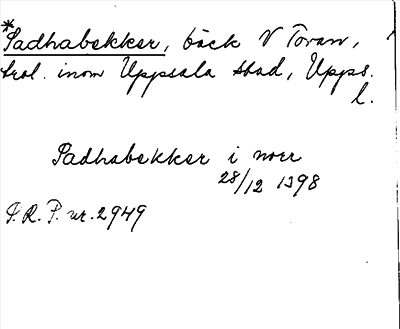 *Sadhabekker, bäck V Toran,
trol. inom Uppsala stad, Upps.
l.
Sadhabekker i norr
28/12 1398
S.R.P. nr. 2949